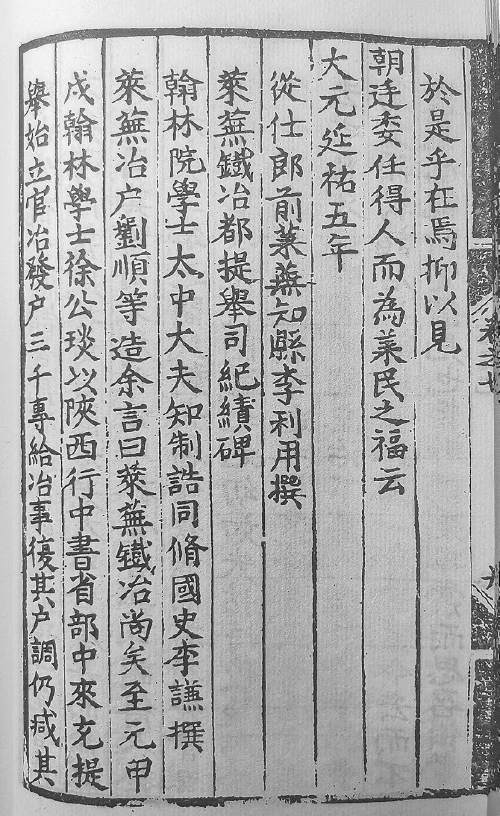 於是乎在焉抑以見
朝廷委任得人而為萊民之福云
大元延祐五年
從仕郎前萊蕪知縣李利用撰
萊蕪鐵冶都提舉司紀績碑
翰林院學士太中大夫知制誥同脩國史李謙撰
萊蕪冶户劉順等造余言曰萊蕪鐵冶尚矣至元甲
戌翰林學士徐公琰以陜西行中書省部中來充提
舉始立官冶發户三千專給冶事復其户調仍减其